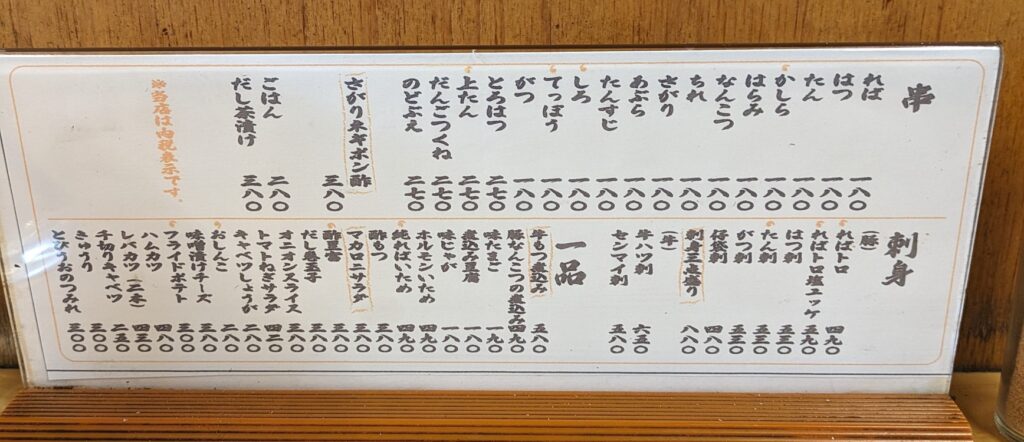 串
れば 一八〇
はつ 一八〇
たん 一八〇
かしら 一八〇
はらみ 一八〇
なんこつ 一八〇
ちれ 一八〇
さがり 一八〇
あぶら 一八〇
たんすじ 一八〇
しろ 一八〇
てっぽう 一八〇
がつ 一八〇
とろはつ 二七〇
上たん 二七〇
だんごつくね 二七〇
のどぶえ 二七〇
さがりネギポン酢 三八〇
ごはん 二八〇
だし茶漬け 三八〇
※当店は内税表示です。
刺身
（豚）
ればトロ 四九〇
ればトロ塩ユッケ 五九〇
はつ刺 五三〇
たん刺 五三〇
がつ刺 五三〇
仔袋刺 四八〇
刺身三点盛り 八八〇
（牛）
牛ハツ刺 六五〇
センマイ刺 五八〇
一品
牛もつ煮込み 五八〇
豚なんこつの煮込み 四九〇
味たまご 一九〇
煮込み豆腐 一八〇
味じゃが 一八〇
ホルモンいため 四九〇
純ればいため 四九〇
酢もつ 三八〇
マカロニサラダ 三八〇
三八〇
だし巻玉子 三八〇
オニオンスライス 三八〇
トマトねぎサラダ 四二〇
キャベツしょうが 二八〇
おしんこ 二八〇
味噌漬けチーズ 三八〇
フライドポテト 三〇〇
ハムカツ 四三〇
レバカツ（二本） 四三〇
千切りキャベツ 二五〇
きゅうり 三〇〇
とびうおのつみれ 三〇〇